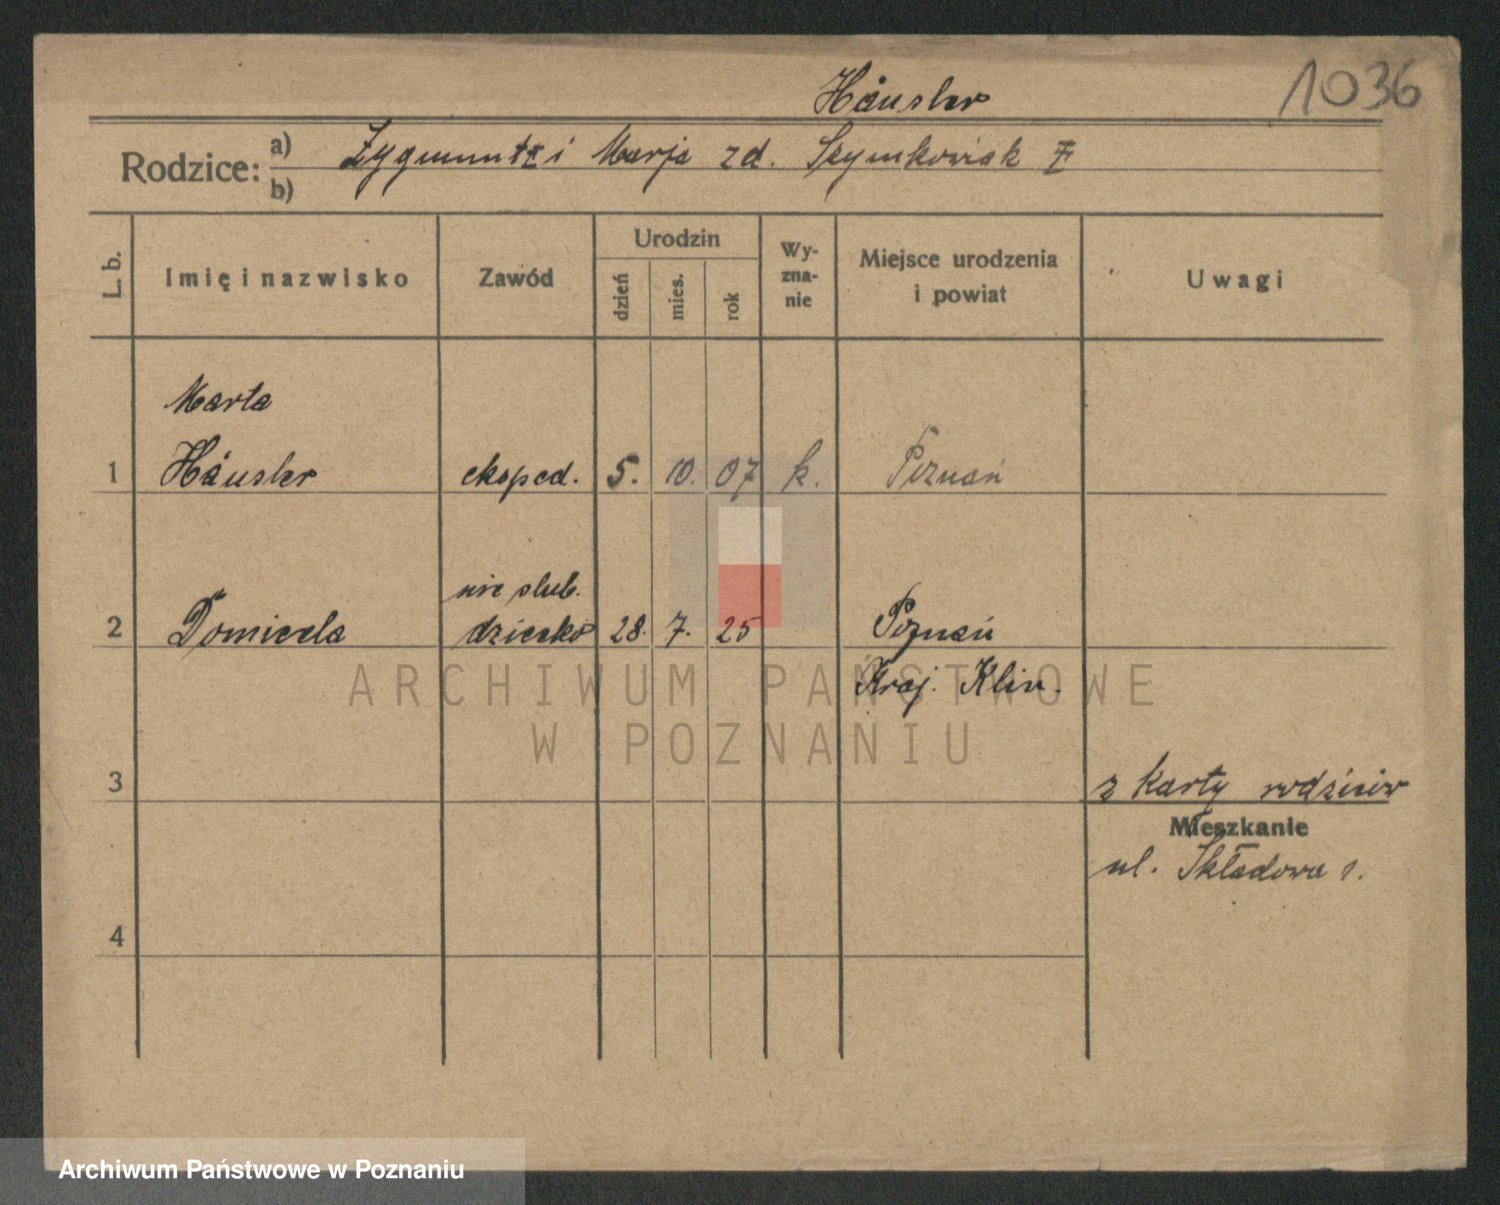 1036
Häusler
Rodzice: a) Zygmunt i Marja zd. Szymkowiak
b)
L. b. Imię i nazwisko Zawód Urodzin dzień mies. rok Wy-zna-nie Miejsce urodzenia i powiat Uwagi
Marta
1 Häusler eksped. 5. 10. 07 k. Poznań
nie ślub.
2 Domicela dziecko 28. 7. 25 Poznań
Kraj. Klin.
ARCHIWUM PAŃSTWOWE
W POZNANIU
3 z karty rodziców
Mieszkanie
ul. Składowa 1.
4
Archiwum Państwowe w Poznaniu